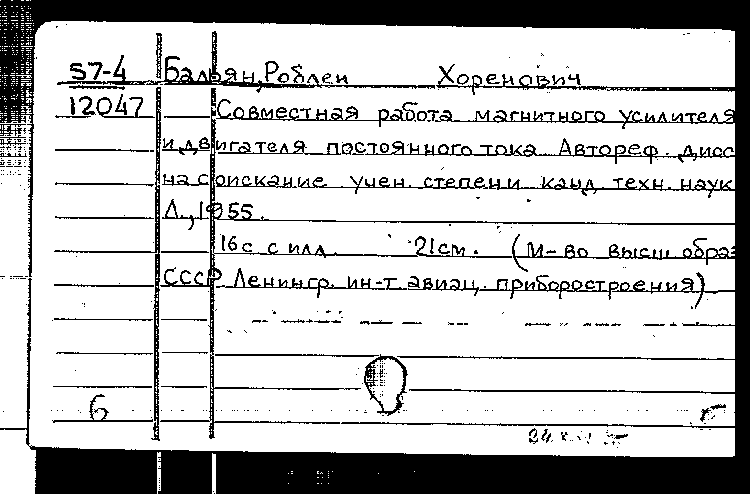 57-4 Бальян, Роблен Хоренович
12047 Совместная работа магнитного усилителя
и двигателя постоянного тока Автореф. дисс
на соискание учен. степени канд. техн. наук
Л., 1955.
16с с илл. 21см. (М-во высш обра
СССР Ленингр. ин-т авиац. приборостроения)
6